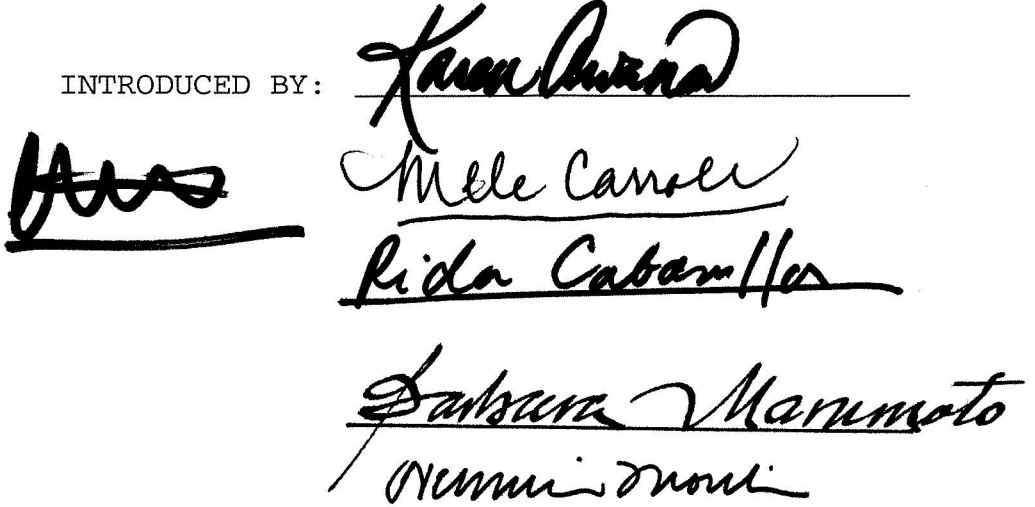 INTRODUCED BY: Karen Awana
Mele Carroll
Rida Cabanilla
Barbara Marumoto
Hermina Morita